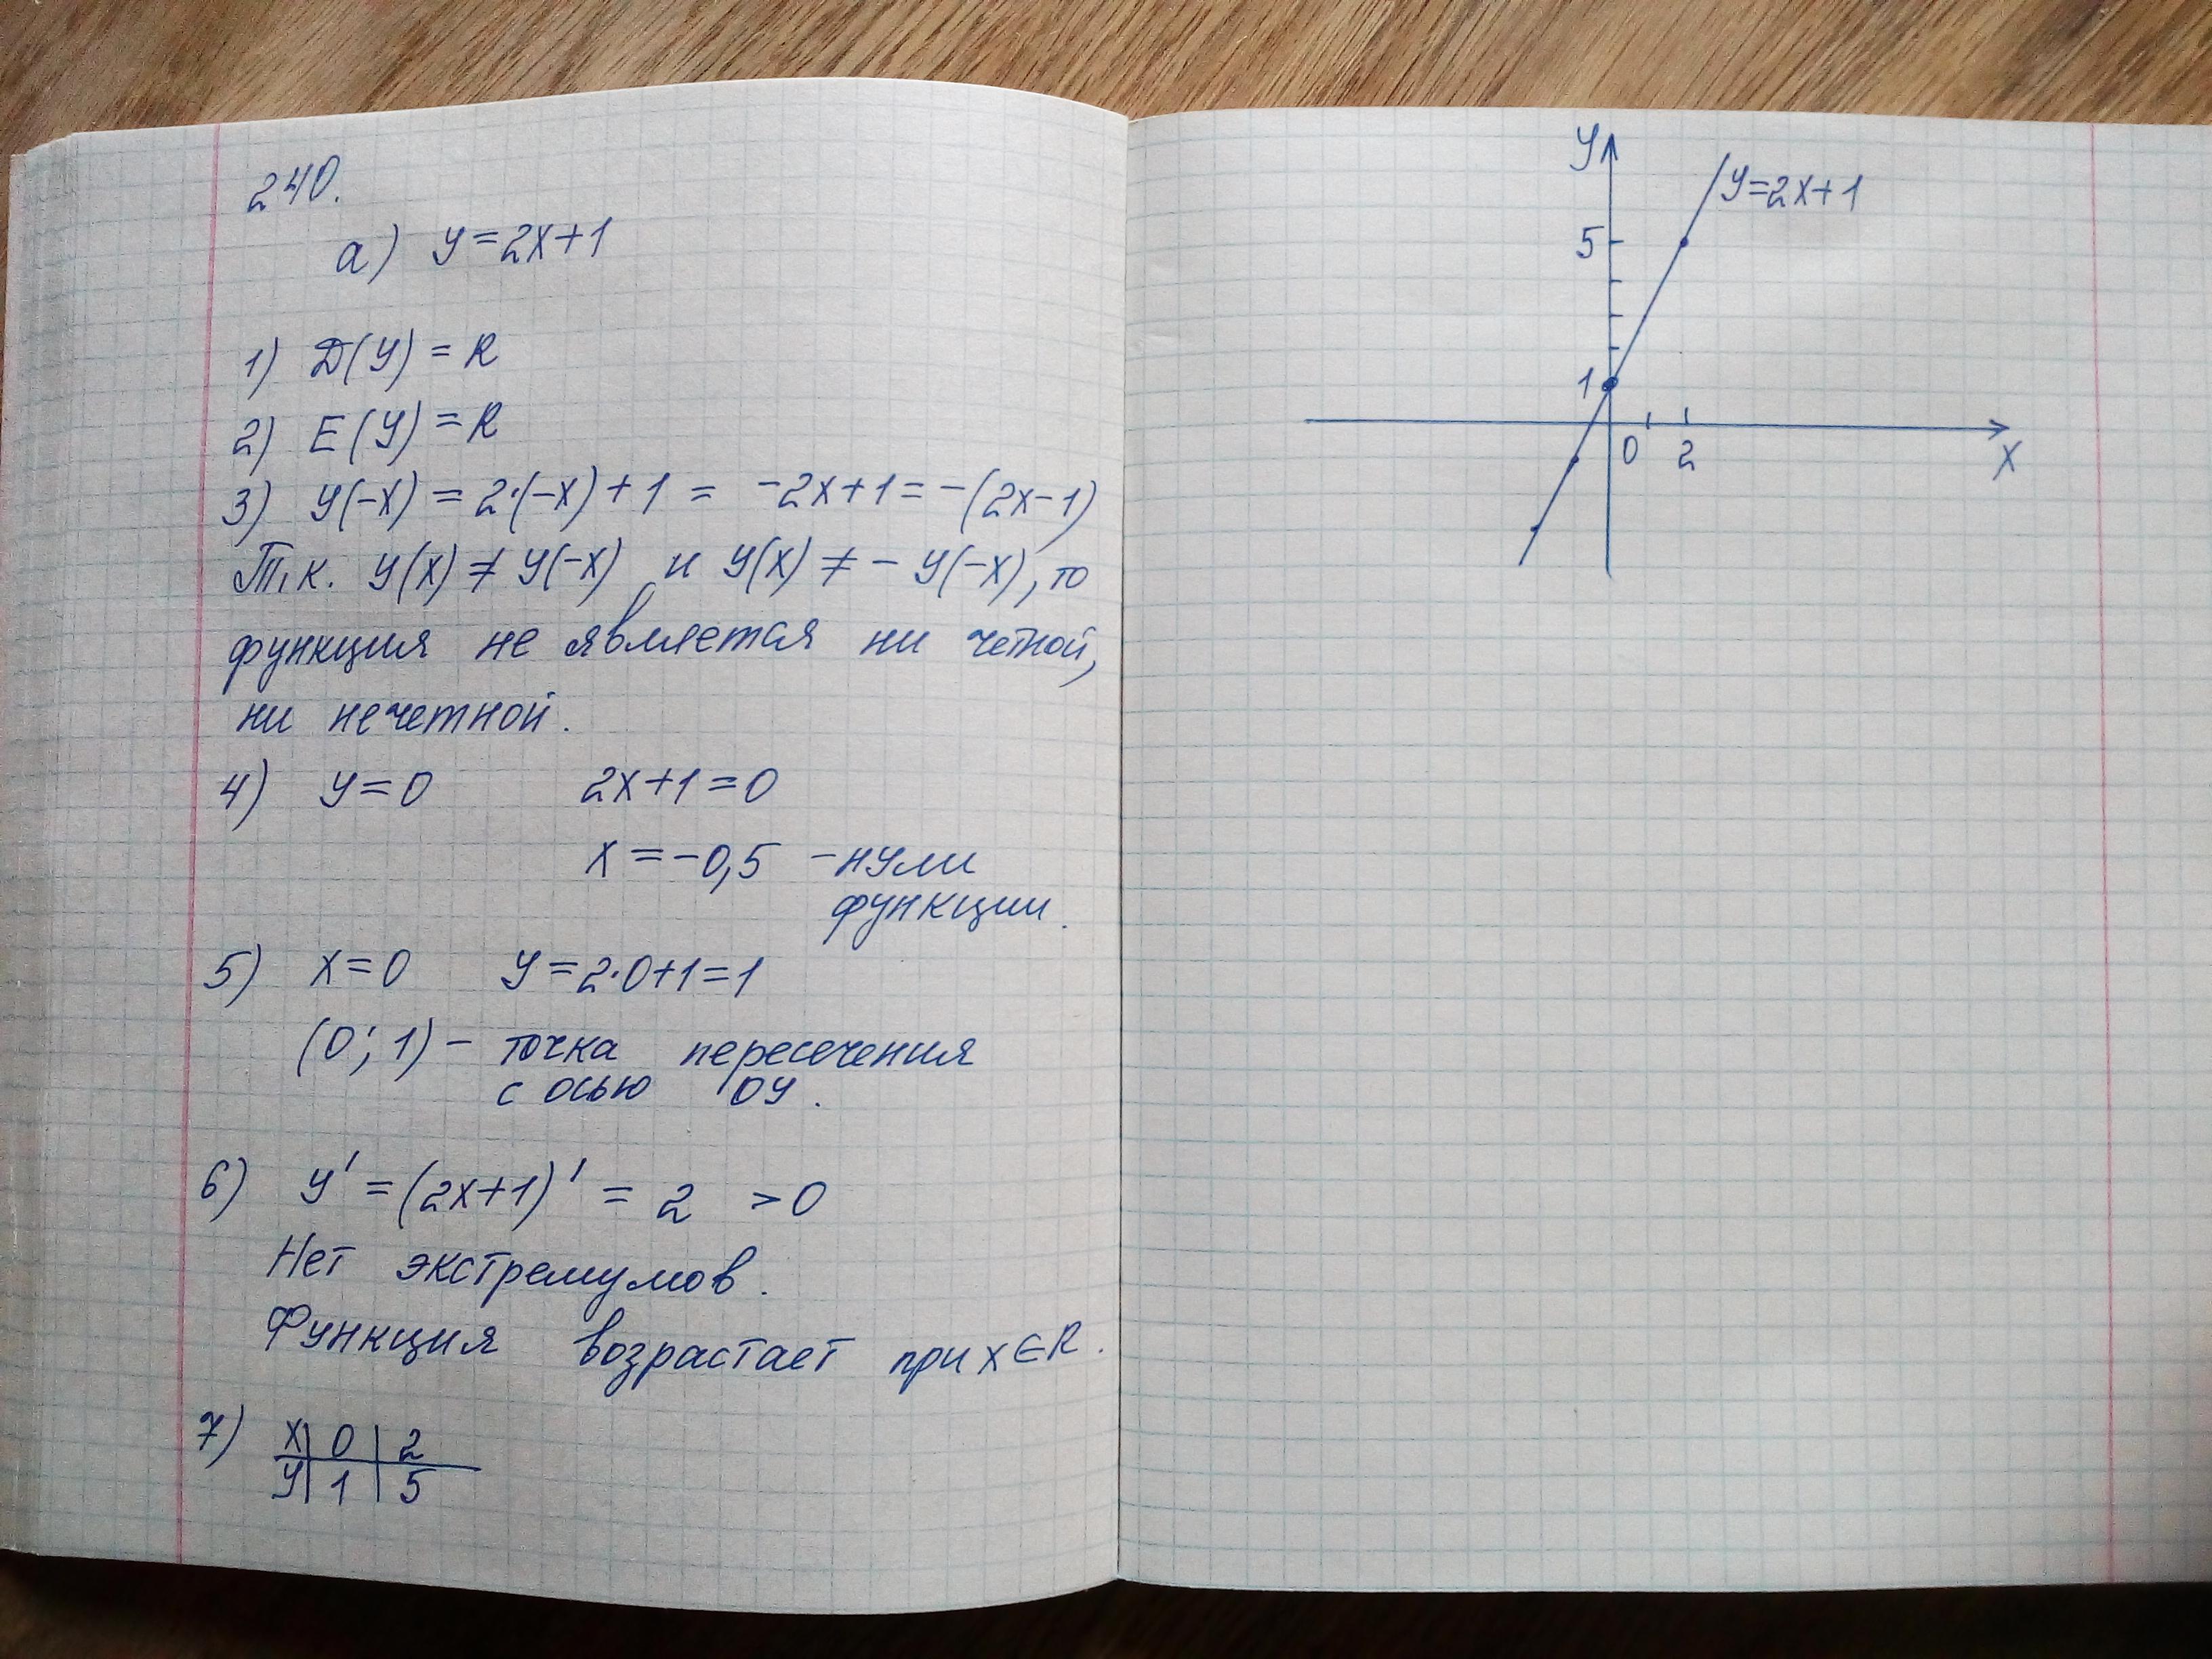 240.
а) y=2x+1
1) D(y) = R
2) E(y) = R
3) y(-x) = 2·(-x)+1 = -2x+1=-(2x-1)
Т.к. y(x) ≠ y(-x) и y(x) ≠ - y(-x), то
функция не является ни четной,
ни нечетной.
4) y=0 2x+1=0
x=-0,5 - нули
функции.
5) x=0 y=2·0+1=1
(0; 1) - точка пересечения
с осью OY.
6) y' = (2x+1)' = 2 >0
Нет экстремумов.
Функция возрастает при x∈R.
7) x | 0 | 2
y | 1 | 5
y
y=2x+1
5
1
0 2
x